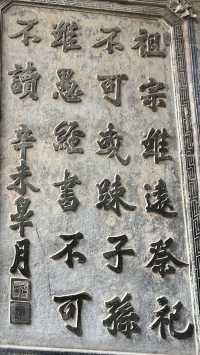 祖宗雖遠祭祀
不可或踈子孫
雖愚經書不可
不讀辛未皋月